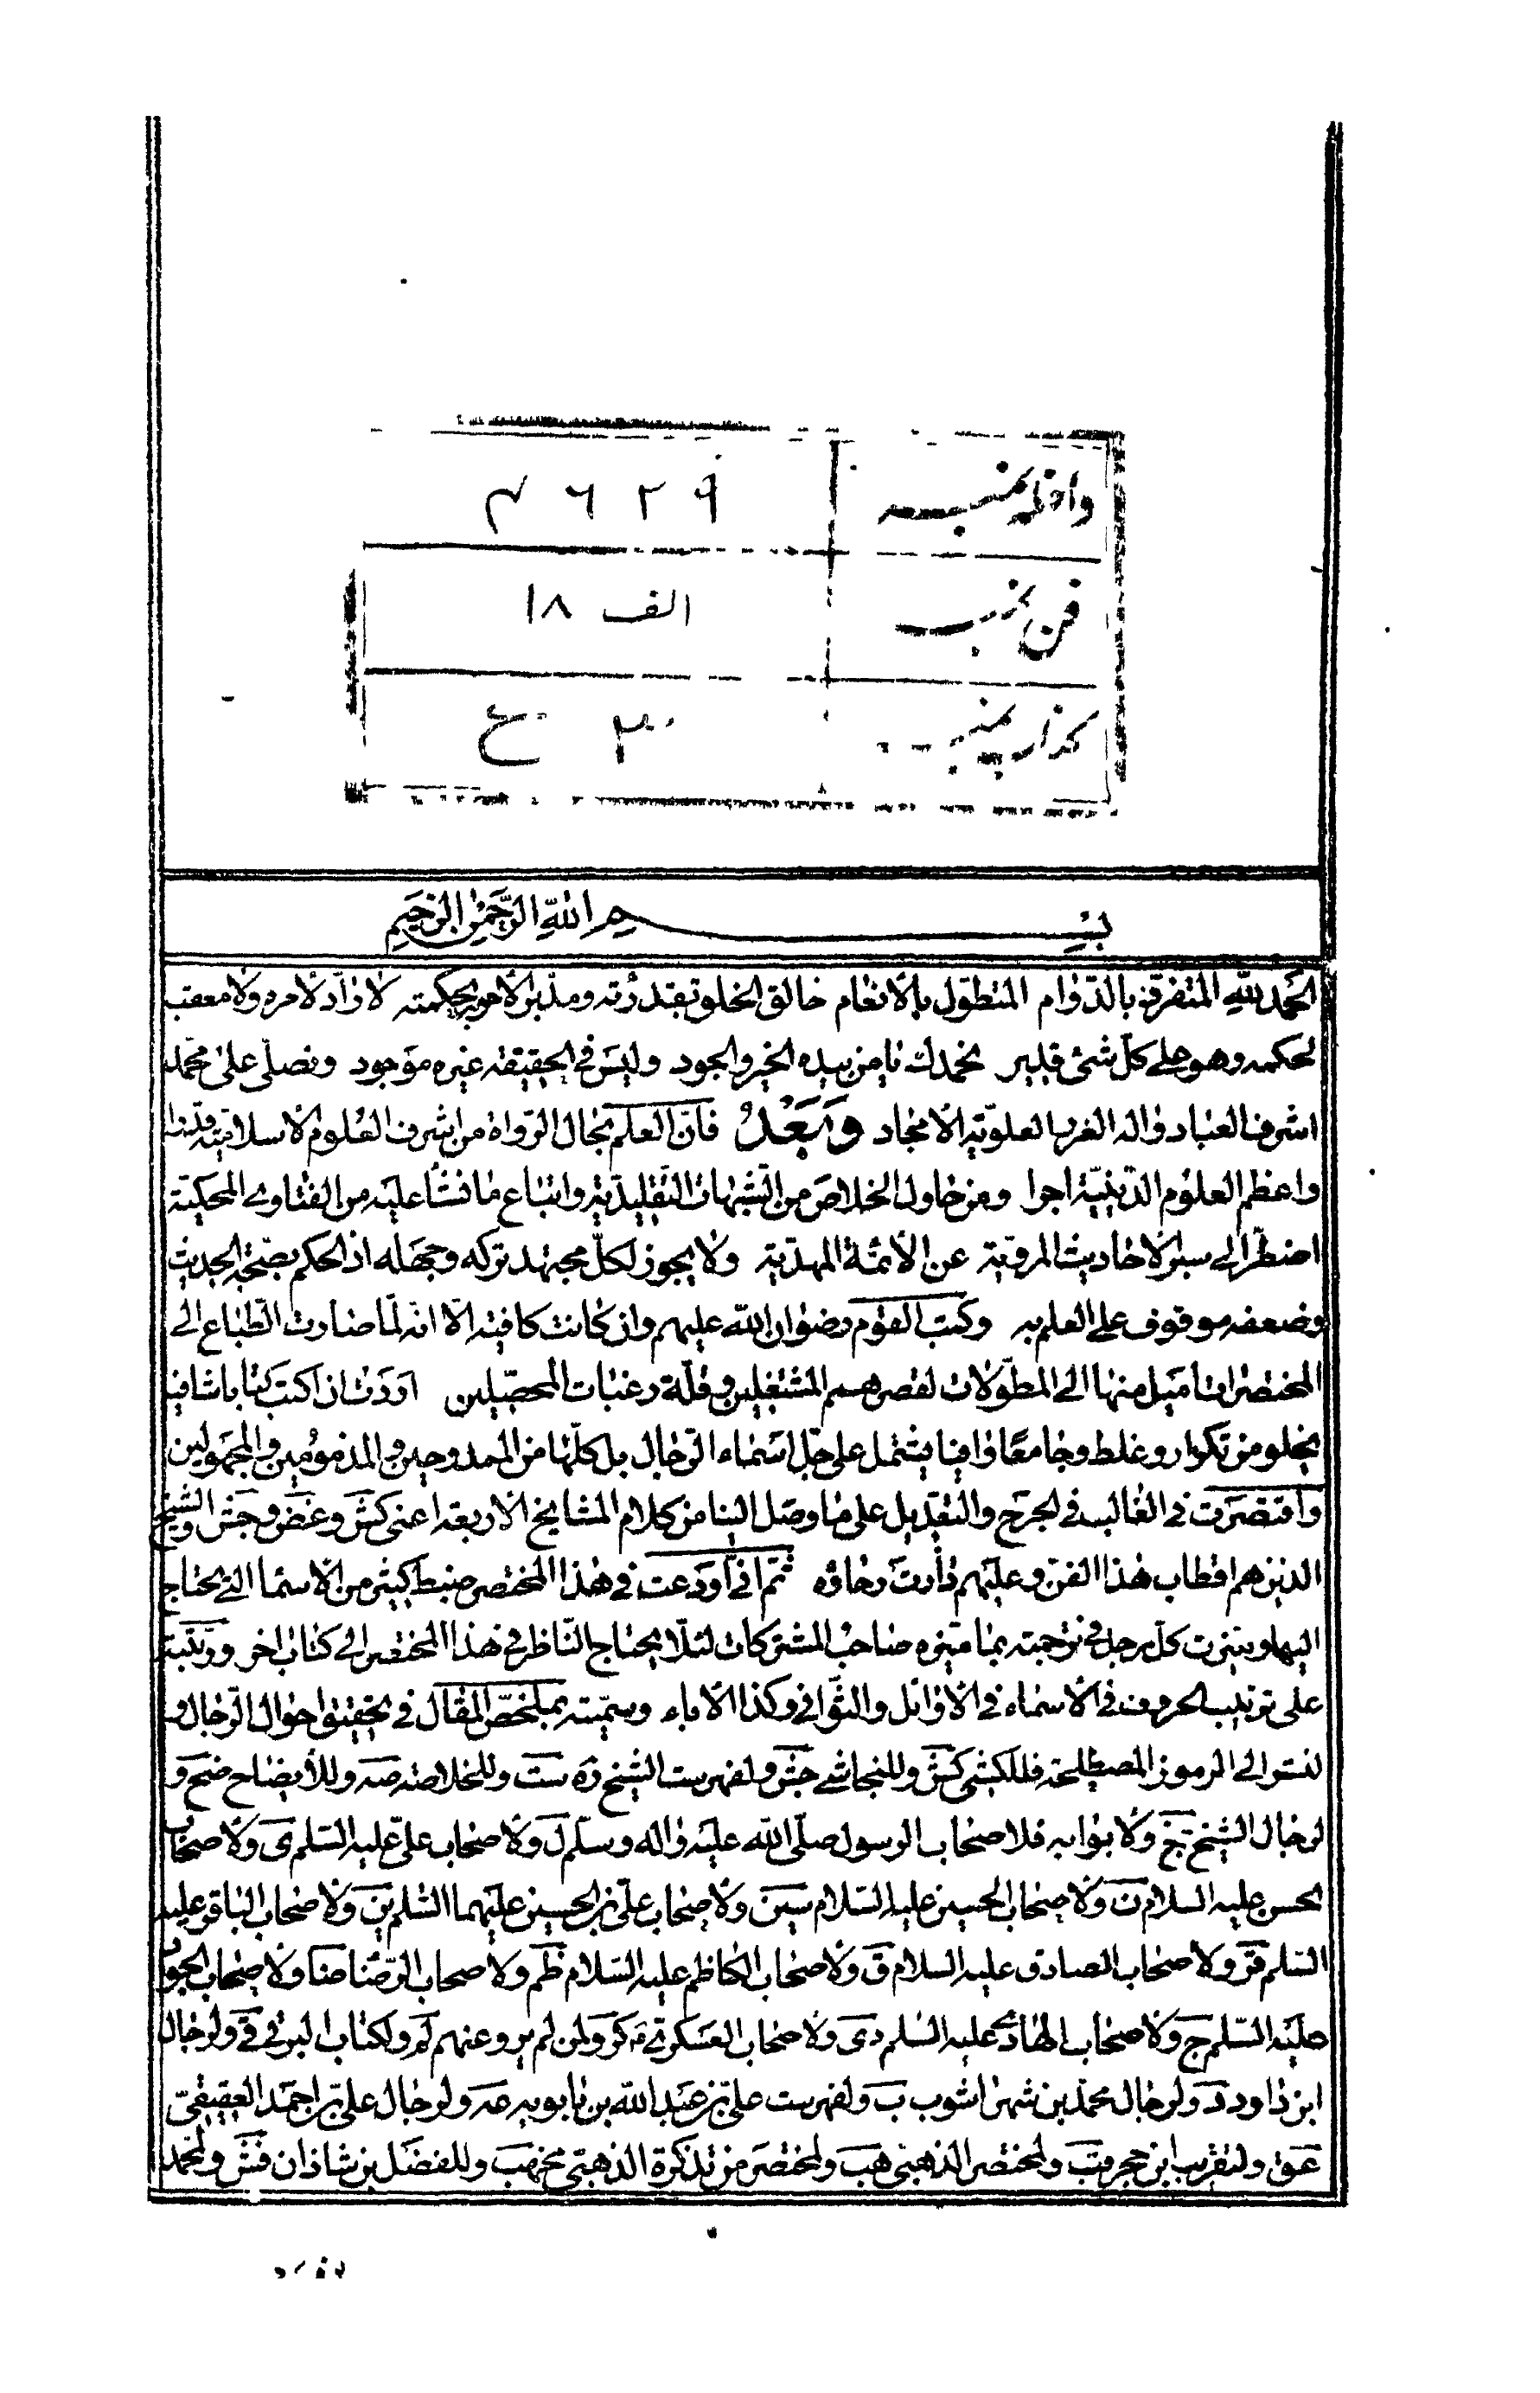 داخلہ نمبر ٤٦٢٩
فن نمبر الف ١٨
کذا نمبر
بسم الله الرّحمن الرحيم
الحمد لله المتفرّد بالدّوام المتطوّل بالانعام خالق الخلق بقدرته ومدبّر الأمور بحكمته لا رادّ لأمره ولا معقب
لحكمه وهو على كلّ شئ قدير نحمدك يا من بيده الخير والجود وليس في الحقيقة غيره موجود ونصلّي على محمّد
اشرف العباد واله الغرر العلويّة الأمجاد وبعد فانّ العلم بحال الرّواة من اشرف العلوم الاسلاميّة قدرا
واعظم العلوم الدّينيّة اجرا ومن حاول الخلاص من الشّبهات التّقليديّة واتباع ما نشأ عليه من الفتاوى المحكيّة
اضطرّ الى سبر الاحاديث المرويّة عن الأئمّة المهديّة ولا يجوز لكلّ مجتهد تركه وجهله اذ الحكم بصحّة الحديث
وضعفه موقوف على العلم به وكتب القوم رضوان الله عليهم وان كانت كافية الّا انه لمّا صارت الطّباع الى
المختصرات أميل منها الى المطوّلات لقصر همم المشتغلين وقلّة رغبات المحصّلين اردت ان اكتب كتابا شافيا
يخلو من تكرار وغلط وجامعًا وافيا يشتمل على جلّ اسماء الرّجال بل كلّها من الممدوحين والمذمومين والمجهولين
واقتصرت في الغالب في الجرح والتعديل على ما وصل الينا من كلام المشايخ الاربعة اعنى كش وغض وجش والشيخ
الذين هم اقطاب هذا الفن وعليهم دارت رحاؤه ثمّ انّى أودعت في هذا المختصر ضبط كثير من الاسماء التي يحتاج
اليها وميّزت كلّ رجل في ترجمته بما ميّزه صاحب المشتركات لئلّا يحتاج النّاظر في هذا المختصر الى كتاب اخر ورتّبته
على ترتيب الحروف في الأسماء في الأوائل والثّواني وكذا الآباء وسمّيته بملخّص المقال في تحقيق احوال الرّجال و
لنشر الى الرموز المصطلحة فللكشى كش وللنجاشي جش ولفهرست الشيخ ره ست وللخلاصة صه وللأيضاح ضح و
لرجال الشيخ جخ ولأبوابه فلاصحاب الرسول صلّى الله عليه واله وسلّم ل ولأصحاب علىّ عليه السّلم ى ولأصحاب
الحسن عليه السلام ن ولأصحاب الحسين عليه السّلام سين ولأصحاب علىّ بن الحسين عليهما السّلم ين ولأصحاب الباقر عليه
السّلم قر ولأصحاب الصادق عليه السلام ق ولأصحاب الكاظم عليه السّلام ظم ولأصحاب الرّضا ضا ولأصحاب الجواد
عليه السّلم ج ولأصحاب الهادي عليه السّلم دى ولأصحاب العسكري كر ولمن لم يرو عنهم لم ولكتاب البرقي قي ولرجال
ابن داود د ولرجال محمّد بن شهراشوب ب ولفهرست علىّ بن عبيد الله بن بابويه عه ولرجال علىّ بن احمد العقيقيّ
عق ولتقريب ابن حجر قب ولمختصر الذهبى هب ولمختصر من تذكرة الذهبي مخهب وللفضل بن شاذان فش ولمحمد